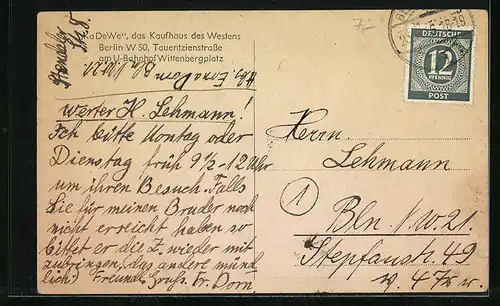 "KaDeWe", das Kaufhaus des Westens
Berlin W 50, Tauentzienstraße
am U-Bahnhof Wittenbergplatz
Werter H. Lehmann!
Ich bitte Montag oder
Dienstag früh 9½-12 Uhr
um ihren Besuch. Falls
Sie für meinen Bruder noch
nicht erreicht haben so
bittet er die Z. wieder mit
zubringen, das andere münd
lich. Freundl. Gruss. Fr. Dorn
DEUTSCHE
12
PFENNIG
POST
Herrn
Lehmann
1
Bln. N.W. 21.
Stephanstr. 49
v. 47